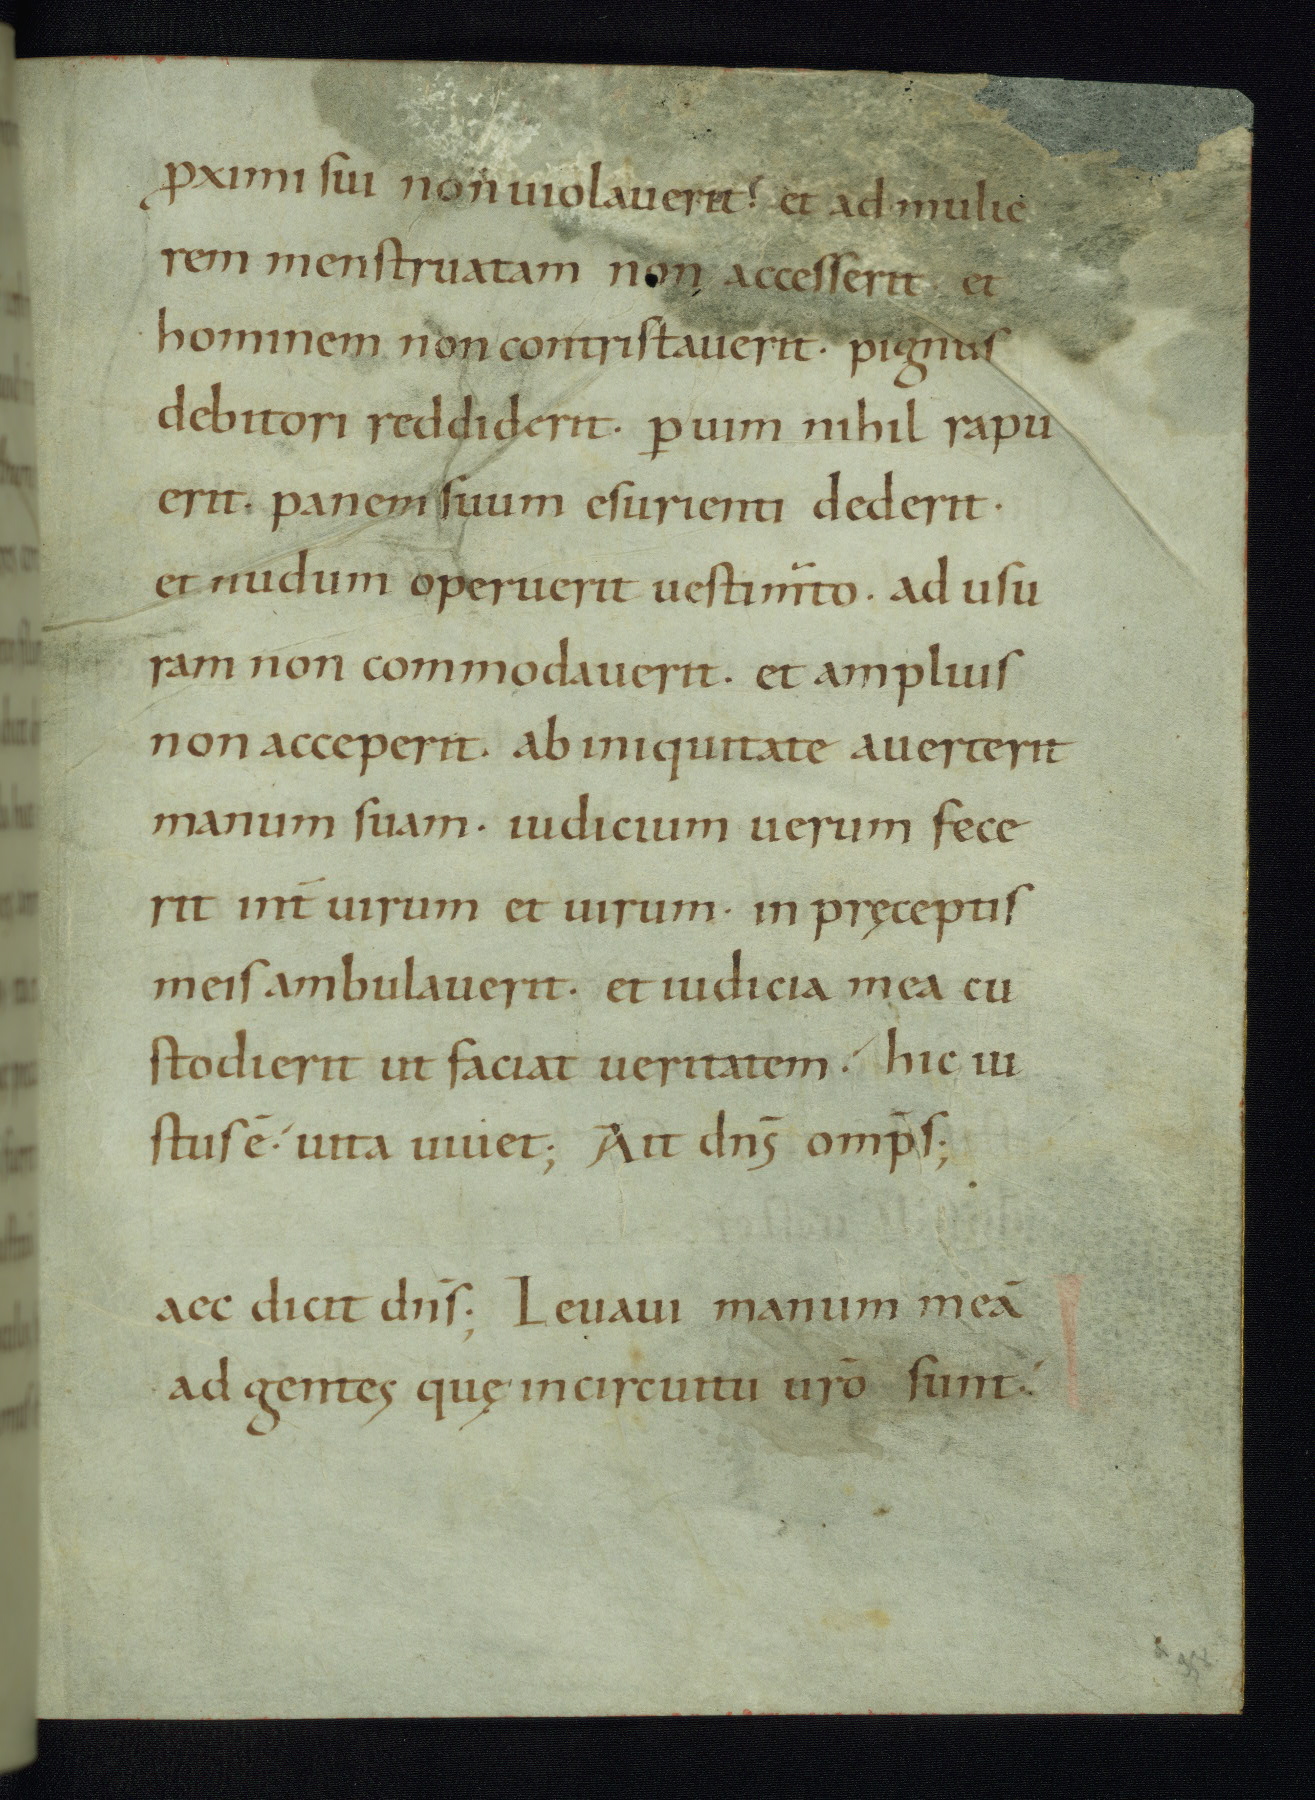 ꝓximi sui non uiolauerit; et ad mulie
rem menstruatam non accesserit. et
hominem non contristauerit. pignus
debitori reddiderit. ꝑ uim nihil rapu
erit. panem suum esurienti dederit.
et nudum operuerit uestim̄to. ad usu
ram non commodauerit. et amplius
non acceperit. ab iniquitate auerterit
manum suam. iudicium uerum fece
rit int̄ uirum et uirum. in pręceptis
meis ambulauerit. et iudicia mea cu
stodierit ut faciat ueritatem. hic iu
stus ē. uita uiuet; Ait dn̄s omp̄s;
aec dicit dn̄s; Leuaui manum meā
ad gentes quę in circuitu ur̄o sunt.